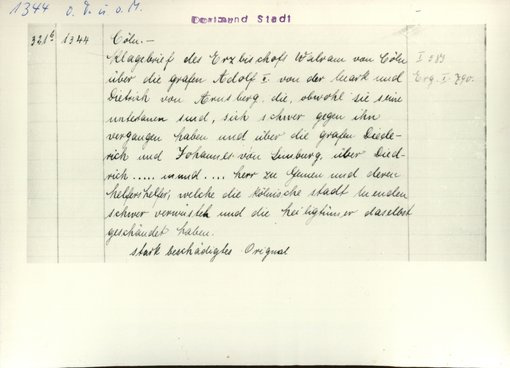 1344 o. T. u. o. M.
Dortmund Stadt
321b 1344 Cöln.-
Klagebrief des Erzbischofs Walram von Cöln I 583
über die grafen Adolf I. von der Mark und Erg. I 790.
Dietrich von Arnsberg, die, obwohl sie seine
untertanen sind, sich schwer gegen ihn
vergangen haben und über die grafen Diede-
rich und Johannes von Limburg, über Died-
rich ..... mund .... herr zu Gemen und deren
helfershelfer, welche die kölnische stadt Menden
schwer verwüstet und die heiligtümer daselbst
geschändet haben.
stark beschädigtes Original